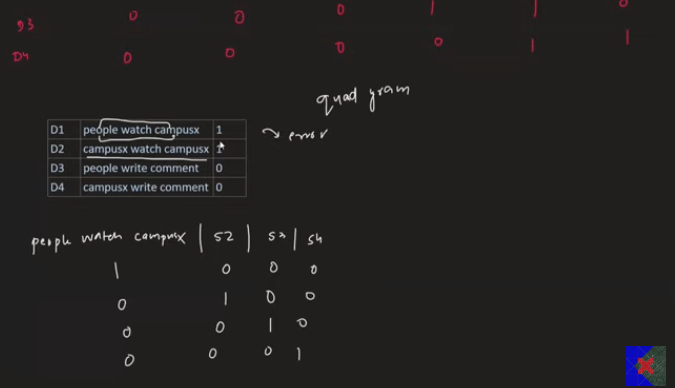 D3 0 0 0 1 1 0
D4 0 0 0 0 1 1
quad gram
D1 people watch campusx 1
→ error
D2 campusx watch campusx 1
D3 people write comment 0
D4 campusx write comment 0
people watch campusx | S2 | S3 | S4
1 0 0 0
0 1 0 0
0 0 1 0
0 0 0 1